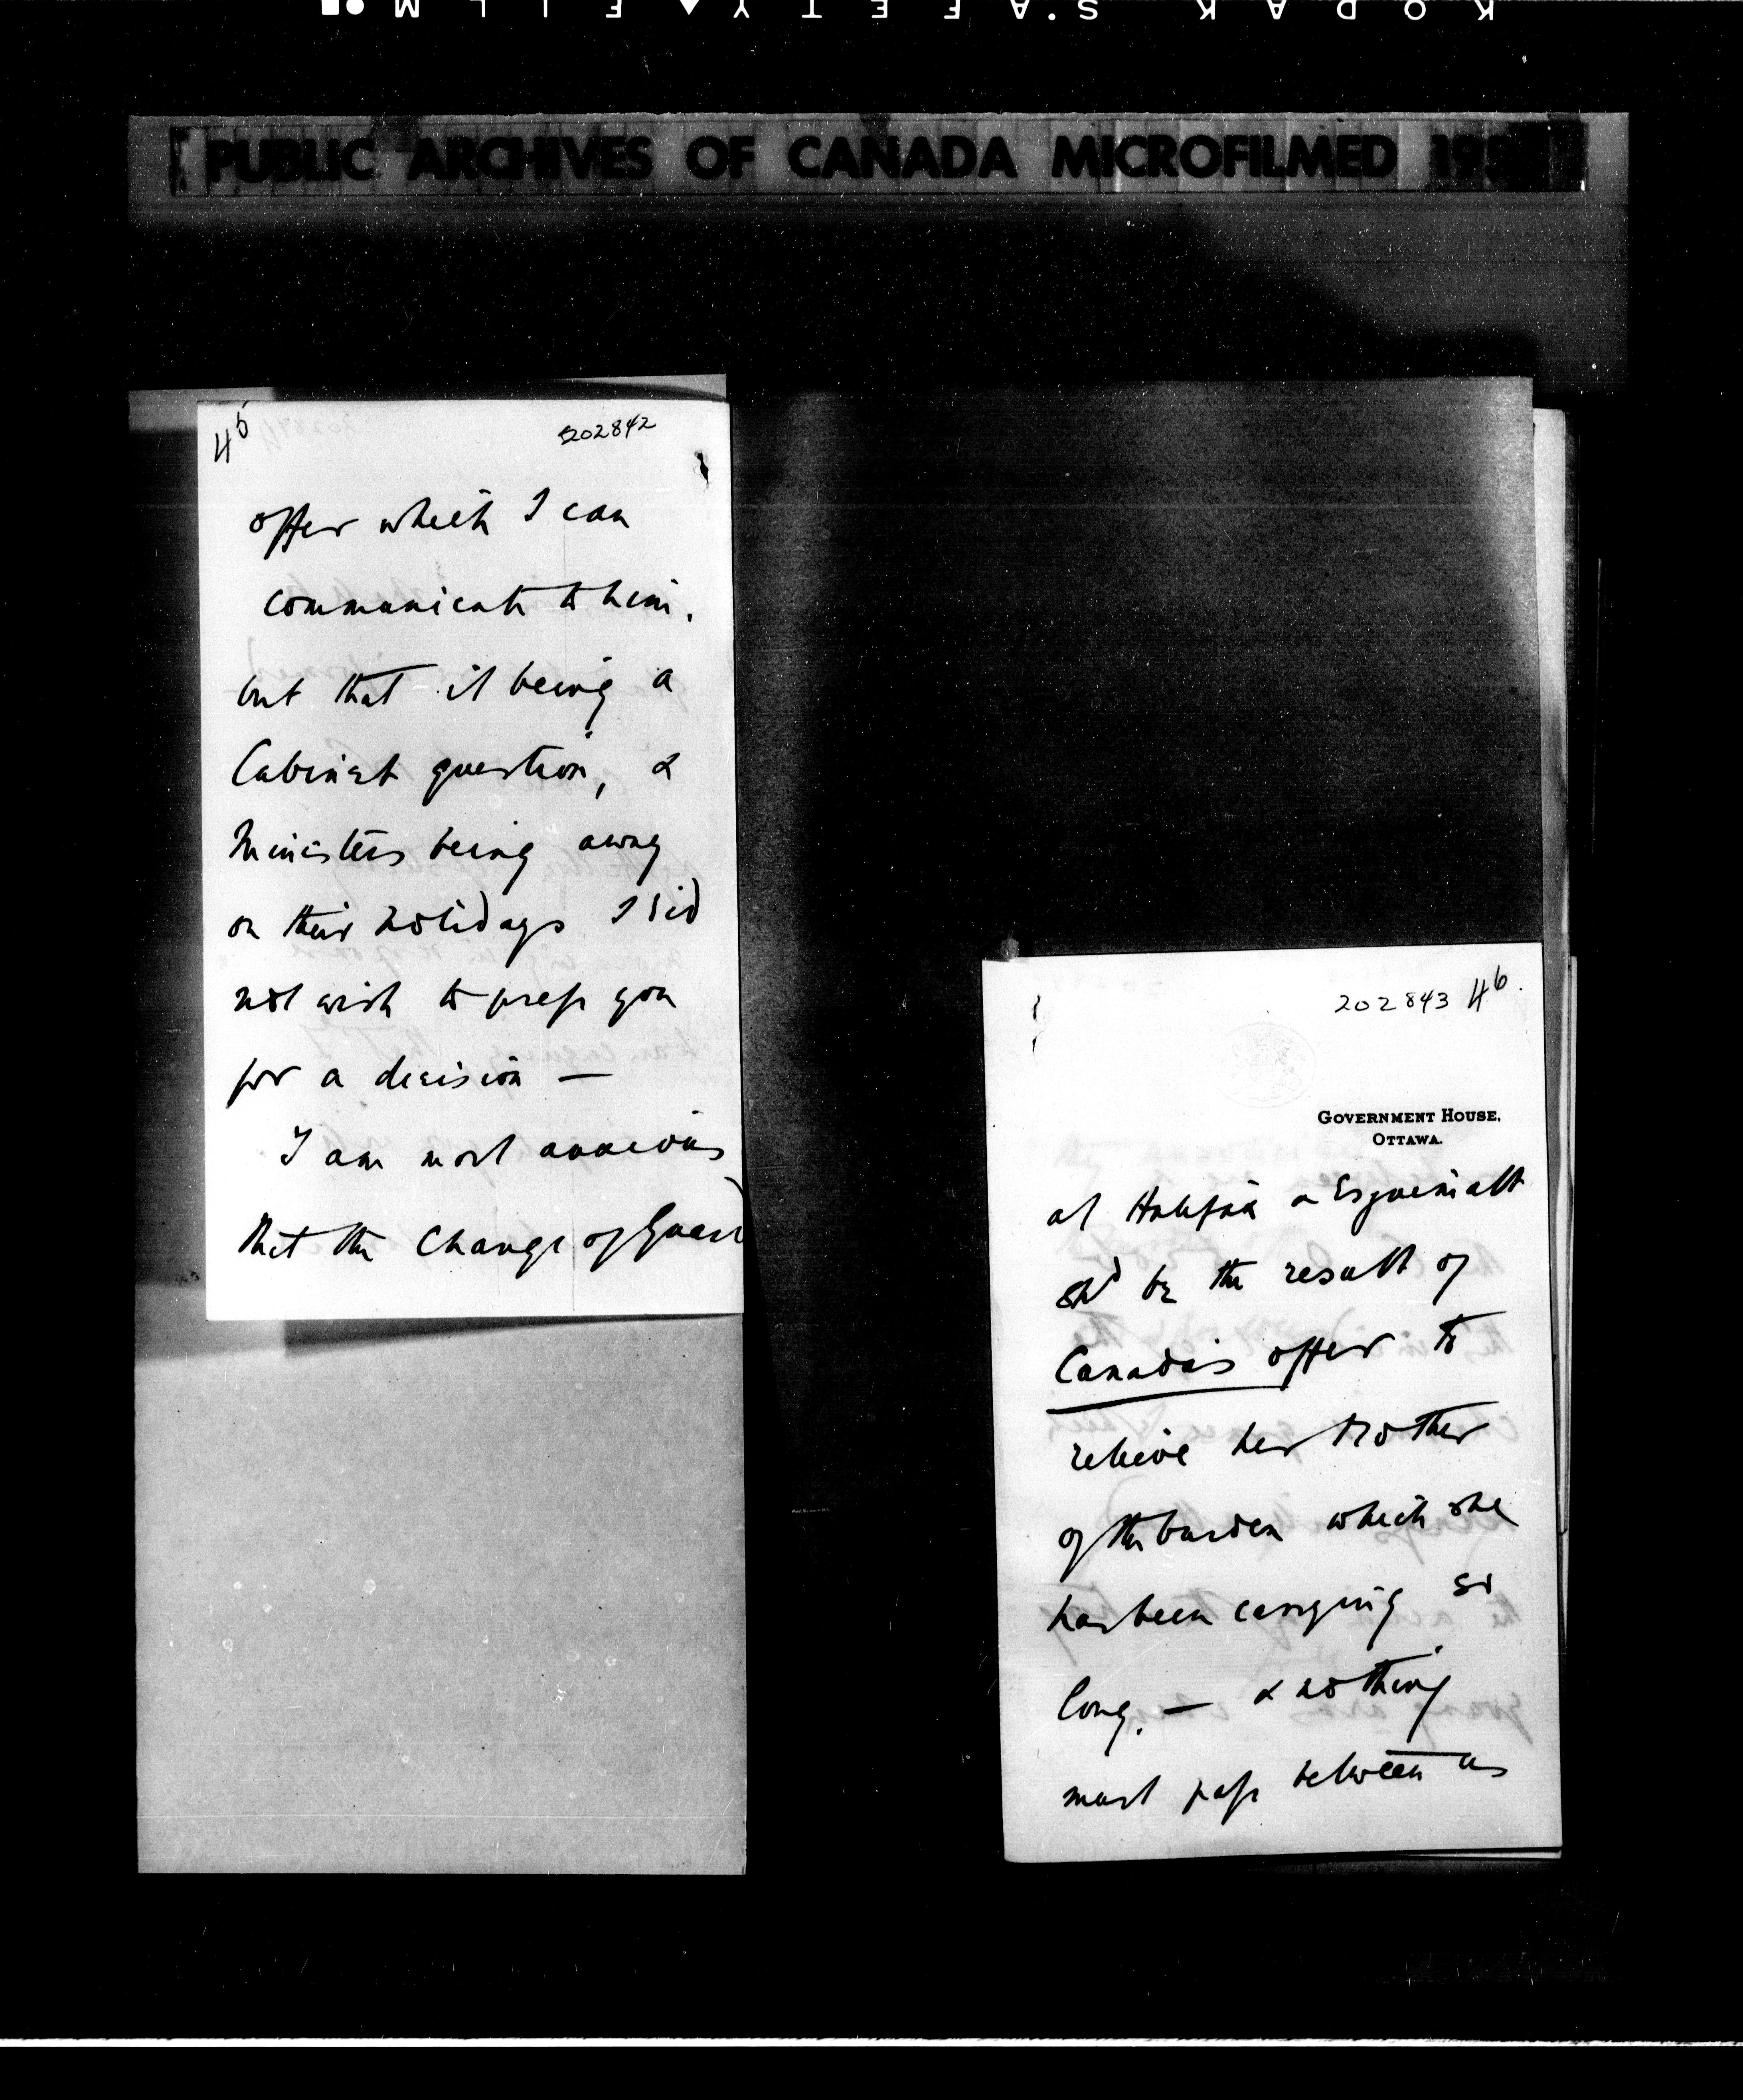 KODAK SAFETY FILM
PUBLIC ARCHIVES OF CANADA MICROFILMED
H5
202842
offer which I can
communicate to him.
but that it being a
Cabinet question, &
Ministers being away
on their holidays I did
not wish to press you
for a decision —
I am most anxious
that the Change of Guard
202843 H6.
GOVERNMENT HOUSE,
OTTAWA.
at Halifax & Esquimalt
shd be the result of
Canada's offer to
relieve her Mother
of the burden which she
has been carrying so
long. — & nothing
must pass between us